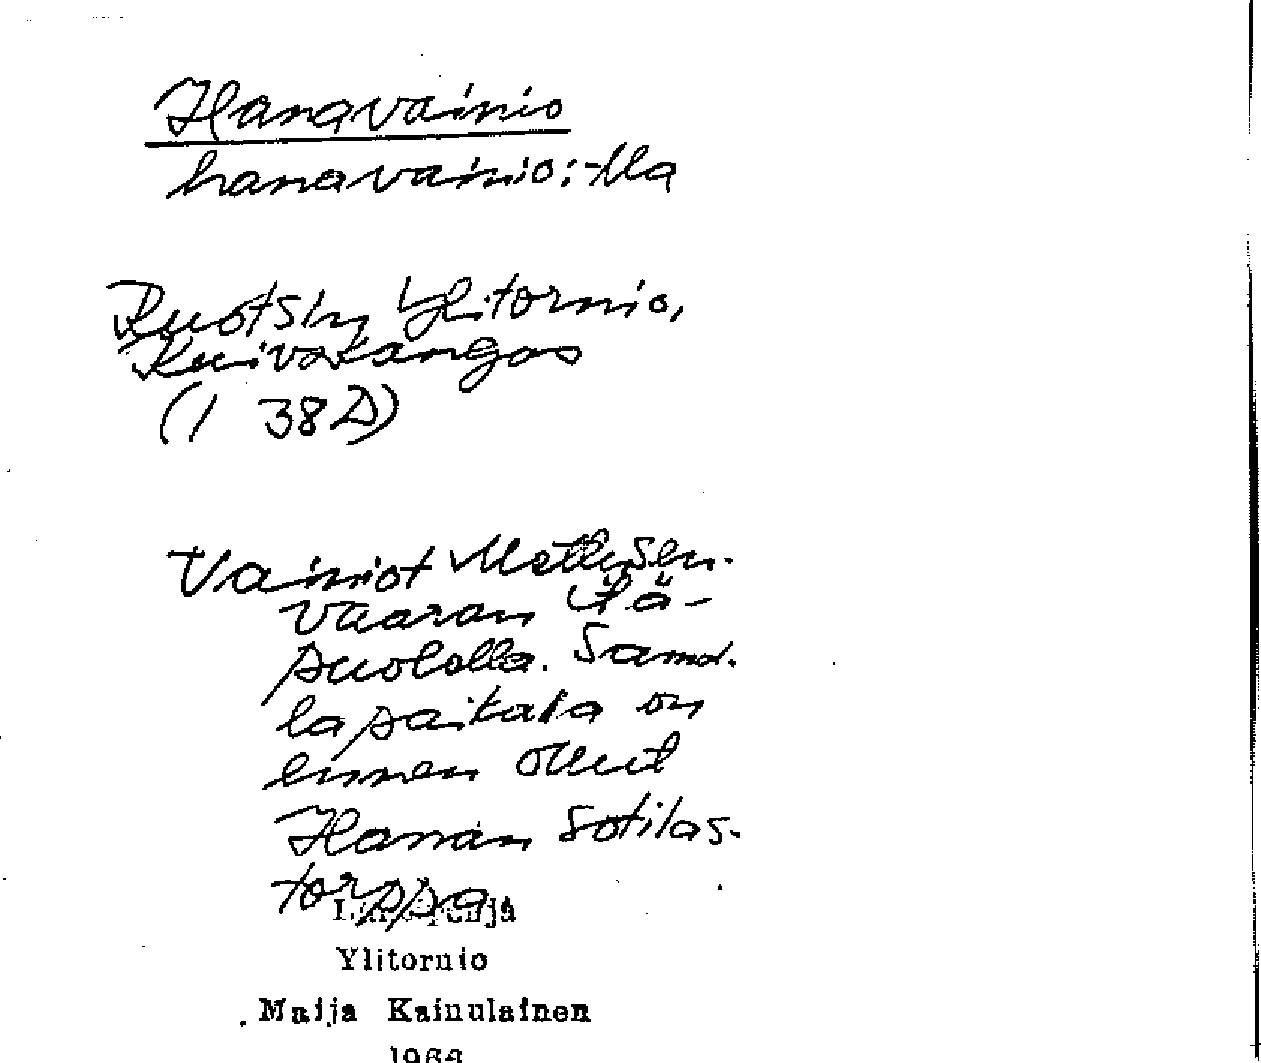 Hanavainio
hanavainio:-lla
Ruotsin Ylitornio,
Kuivakangas
(1 38D)
Vainiot Mettisen-
vaaran itä-
puolella. Samal-
la paikalla on
ennen ollut
Hanan sotilas-
torppa
Ylitornio
Maija Kainulainen